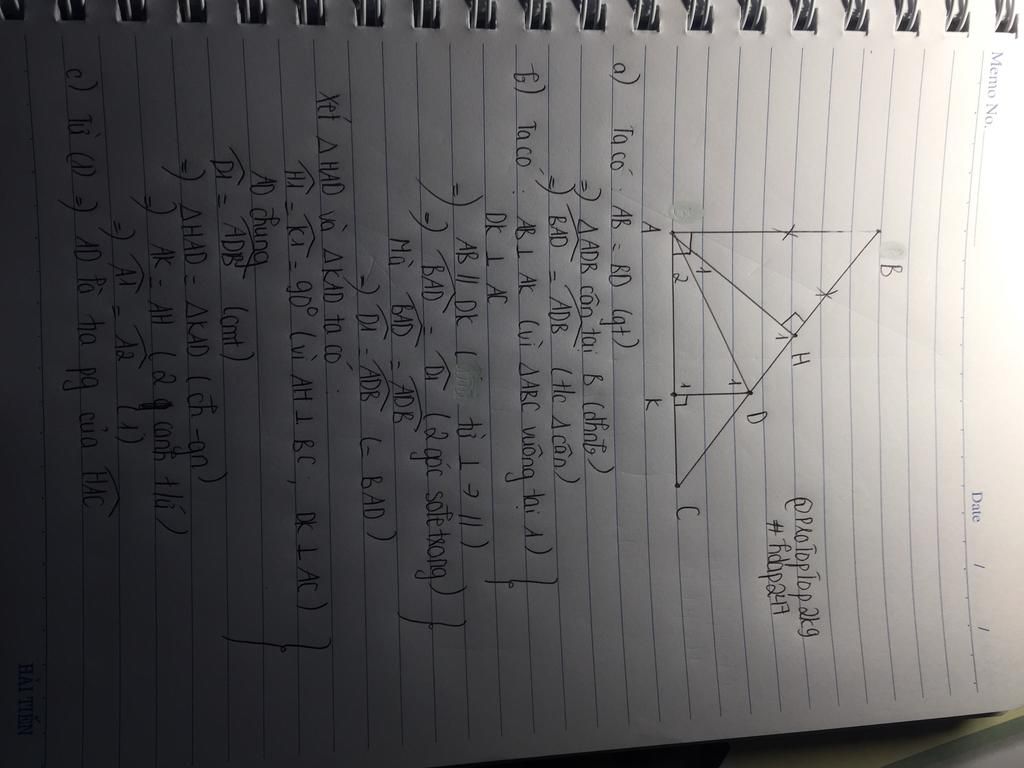 Memo No.
Date / /
@ProTopTop2k9
#hdap247
B
H
1
D
1
1
2
1
A
K
C
a) Ta có: AB = BD (gt)
=) ΔADB cân tại B (dhnb)
=) BAD = ADB (t/c Δ cân)
b) Ta có: AB ⊥ AK (vì ΔABC vuông tại A) }
DK ⊥ AC
=) AB // DK ( từ ⊥ → //)
=) BAD = D1 (2 góc sole trong) }
Mà BAD = ADB
=) D1 = ADB (= BAD)
Xét ΔHAD và ΔKAD ta có:
H1 = K1 = 90° (vì AH ⊥ BC; DK ⊥ AC) }
AD chung
D1 = ADB (cmt)
=) ΔHAD = ΔKAD (ch-gn)
=) AK = AH (2 cạnh t/ứ)
=) A1 = A2 (1)
c) Từ (1) =) AD là tia pg của HAC
HẢI TIẾN